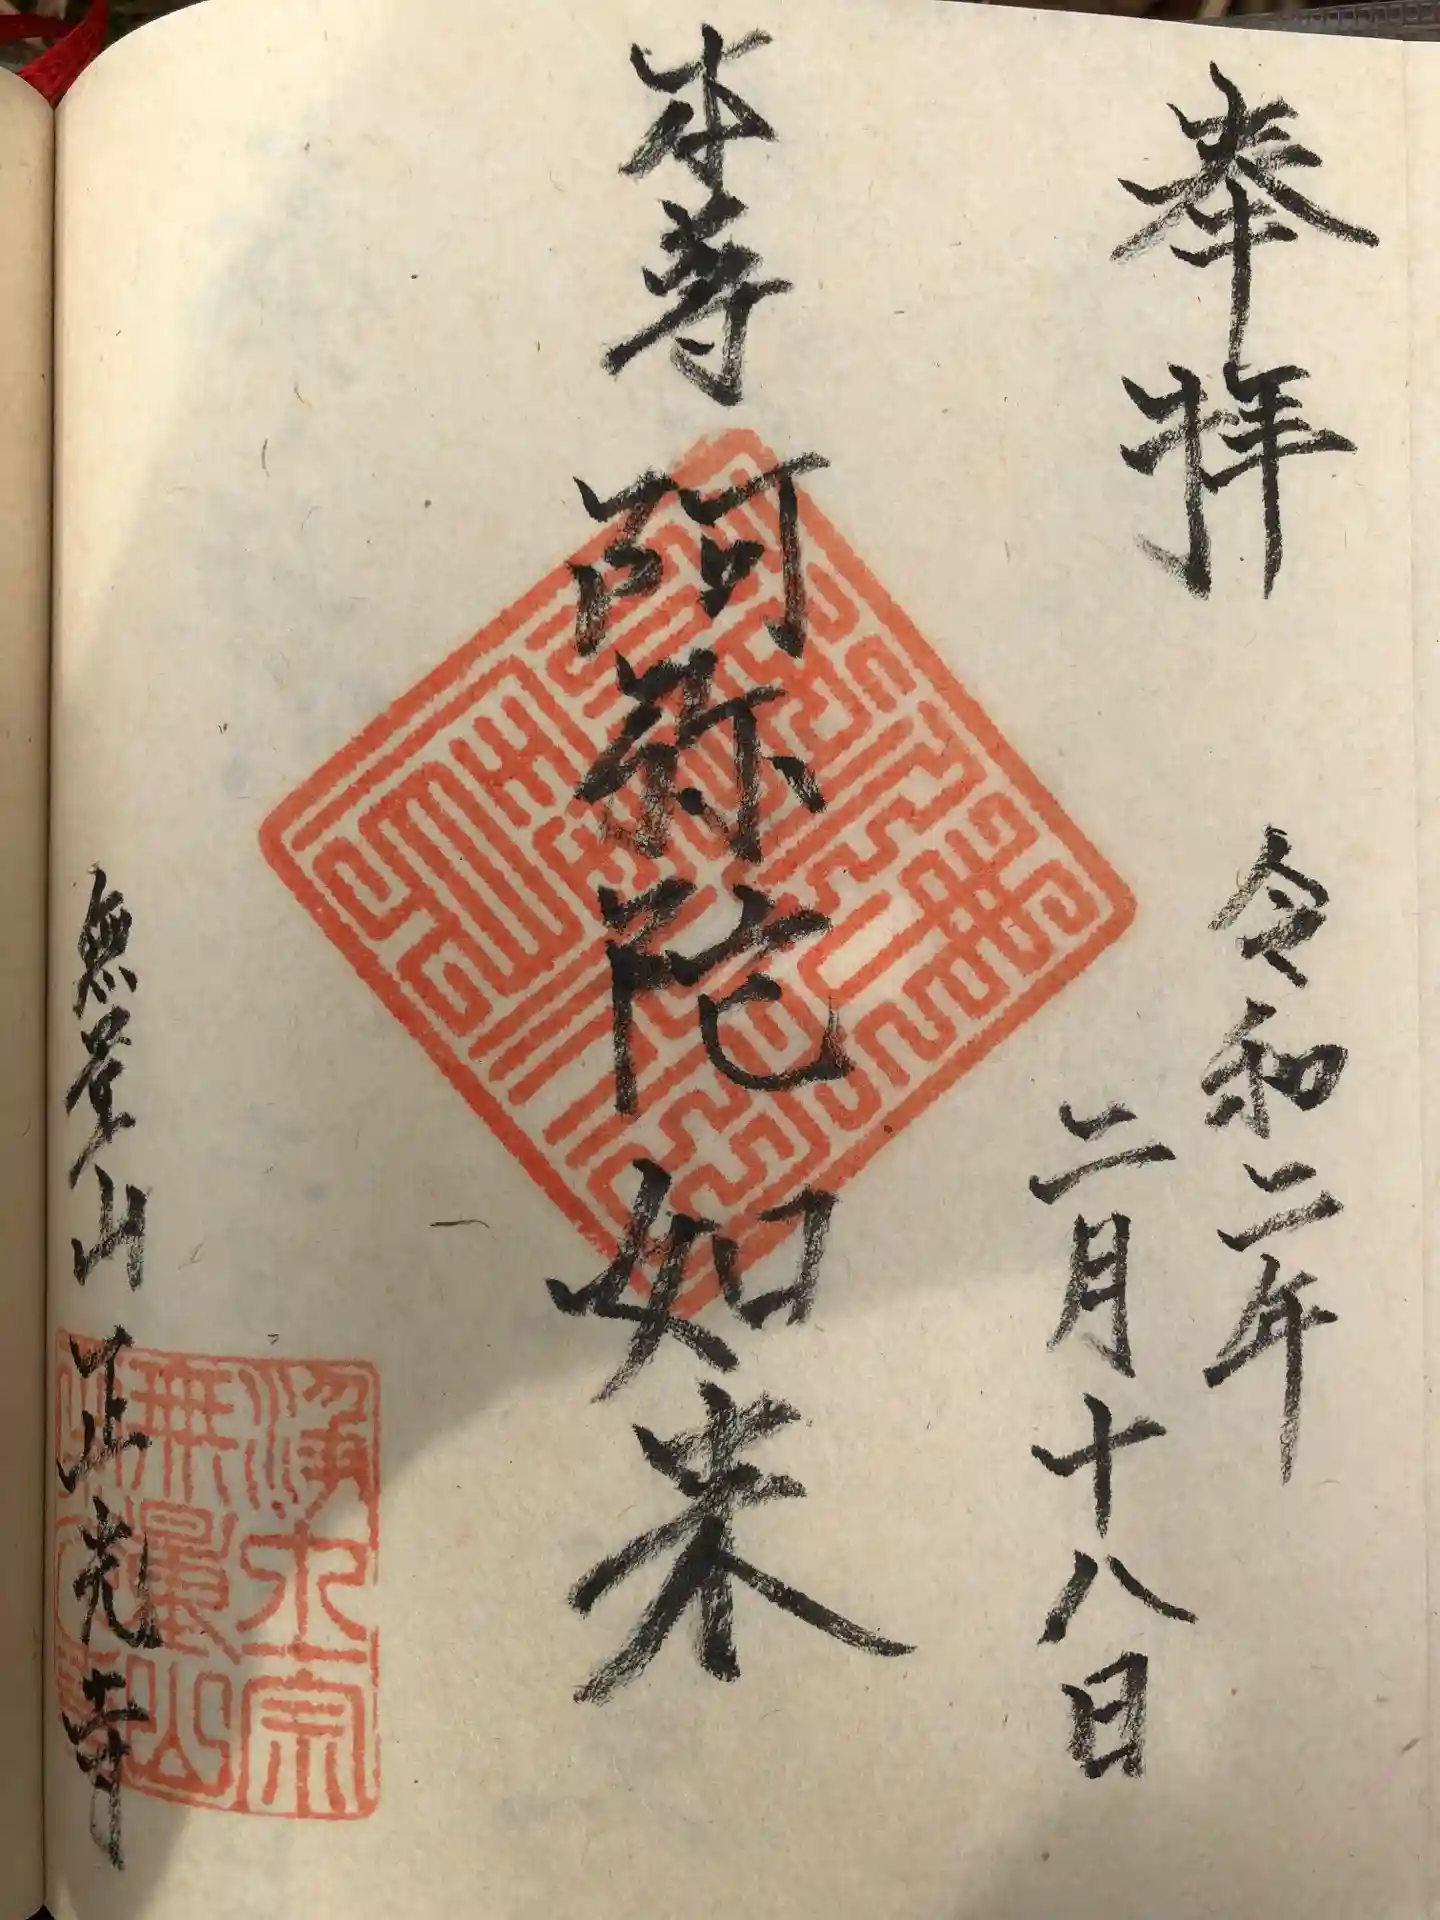 奉拝
令和二年
二月十八日
本尊
阿弥陀如来
無量山
正光寺
浄土宗
無量山